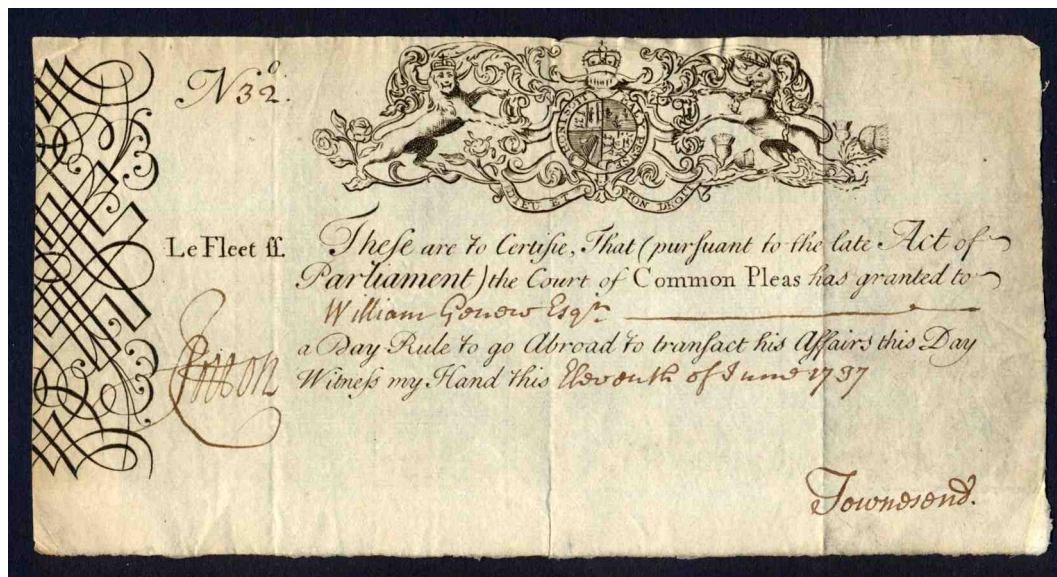 No 32.
DIEU ET MON DROIT
Le Fleet ſſ.
Theſe are to Certifie, That (purſuant to the late Act of
Parliament) the Court of Common Pleas has granted to
William Genew Esqr.
a Day Rule to go Abroad to tranſact his Affairs this Day
Witneſs my Hand this Eleventh of June 1737
Townesend.